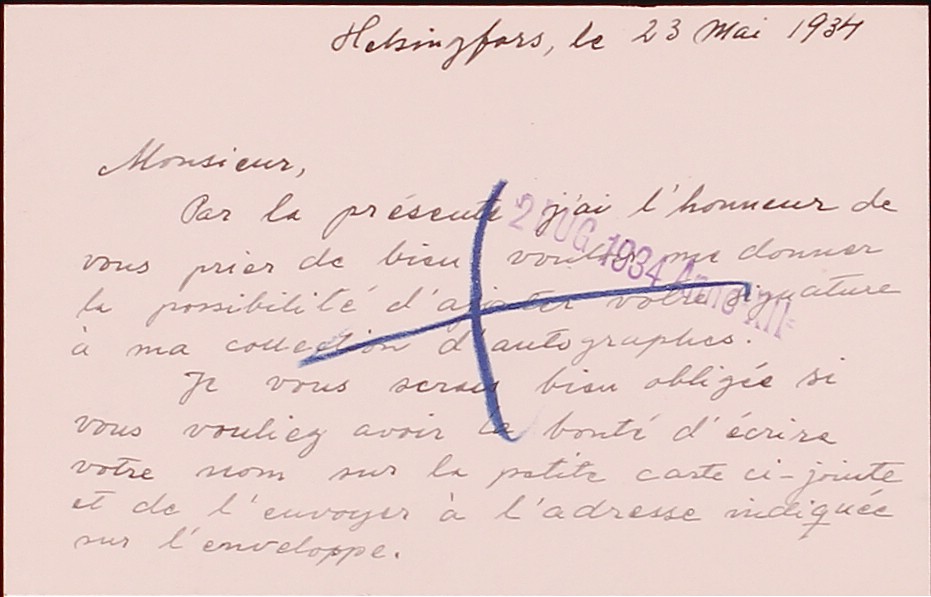 Helsingfors, le 23 Mai 1934
Monsieur,
Par la présente j'ai l'honneur de
vous prier de bien vouloir me donner
la possibilité d'ajouter votre signature
à ma collection d'autographes.
Je vous serais bien obligée si
vous vouliez avoir la bonté d'écrire
votre nom sur la petite carte ci-jointe
et de l'envoyer à l'adresse indiquée
sur l'enveloppe.
2 LUG. 1934 Anno XII